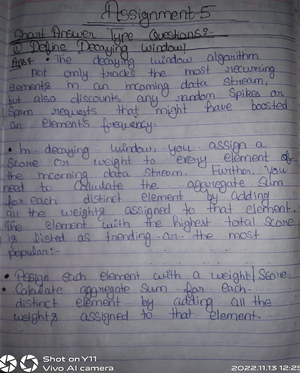 Assignment-5
Short Answer Type Questions:
① Define Decaying Window?
Ans: • The decaying window algorithm
not only tracks the most recurring
elements in an incoming data stream,
but also discounts any random spikes or
spam requests that might have boosted
an element's frequency.
• In decaying window, you assign a
score or weight to every element of
the incoming data stream. Further, you
need to calculate the aggregate sum
for each distinct element by adding
all the weights assigned to that element.
The element with the highest total score
is listed as trending or the most
popular:-
• Assign each element with a weight/Score.
• Calculate aggregate sum for each
distinct element by adding all the
weights assigned to that element.
Shot on Y11
Vivo AI camera
2022.11.13 12:25